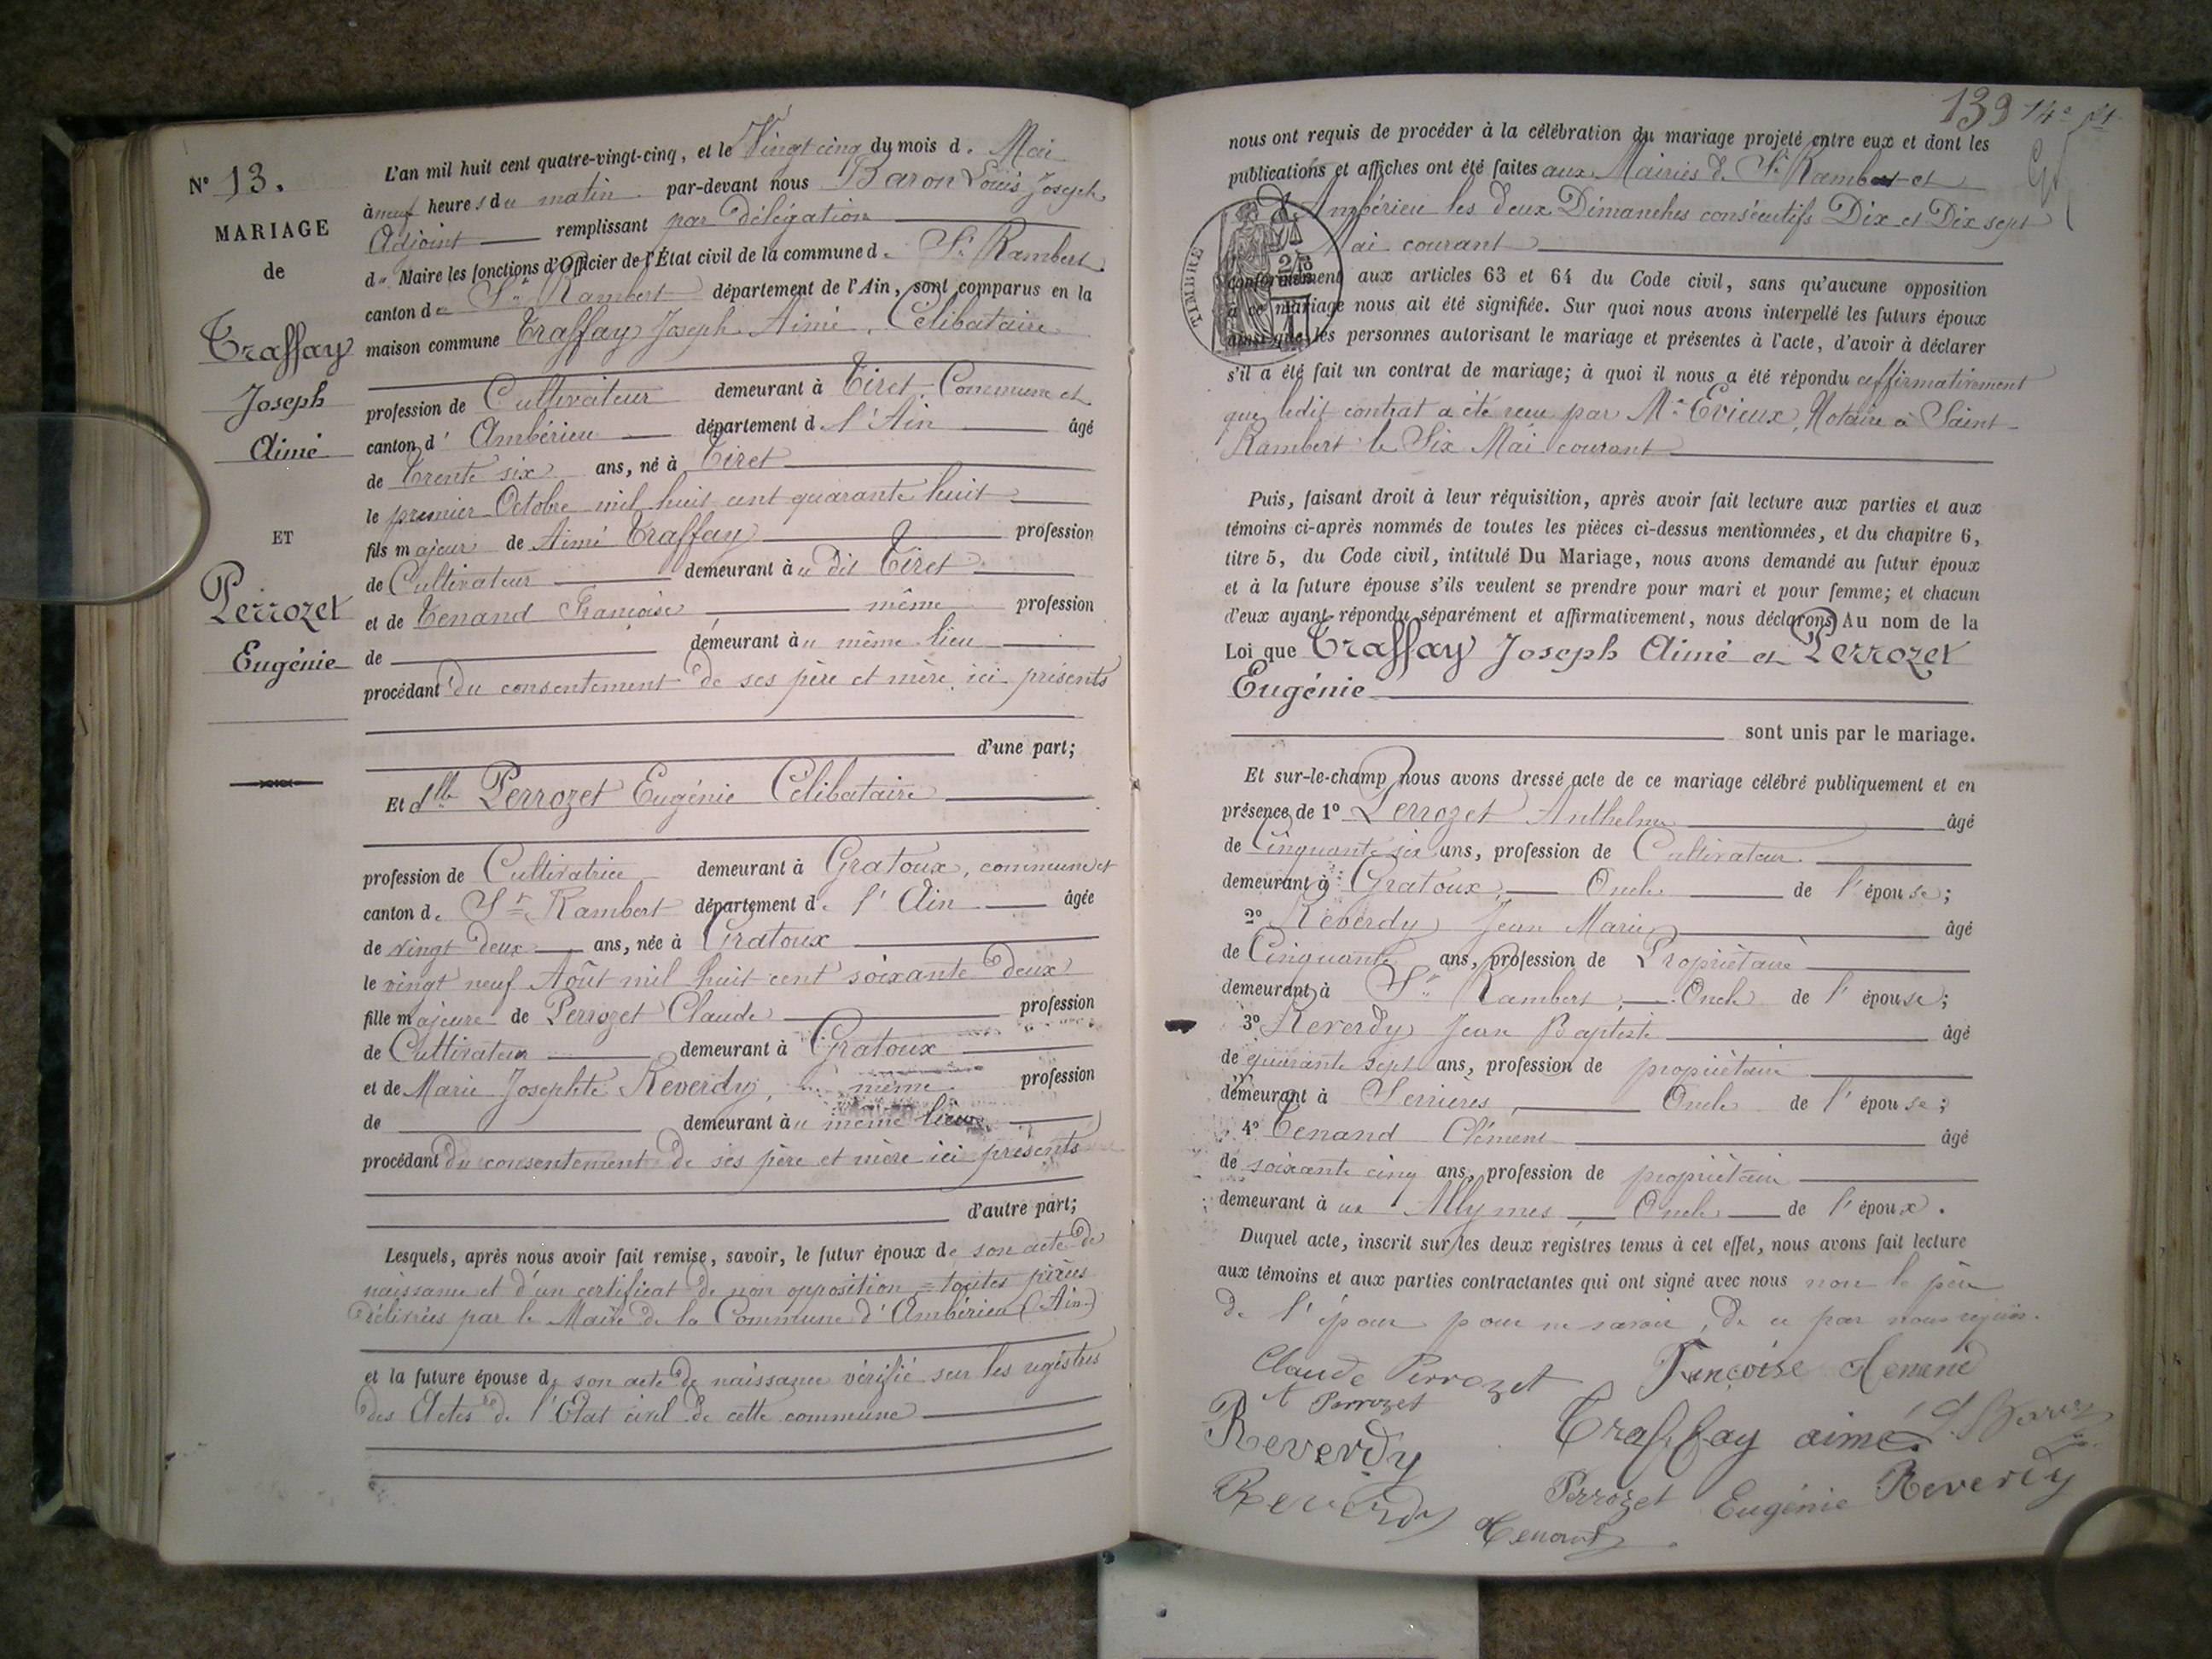 N° 13.
MARIAGE
de
Traffay
Joseph
Aimé
ET
Perrozet
Eugénie
L'an mil huit cent quatre-vingt-cinq, et le Vingt cinq du mois de Mai
à neuf heures du matin par-devant nous Baron Louis Joseph
Adjoint remplissant par délégation
du Maire les fonctions d'Officier de l'État civil de la commune de St Rambert
canton de St Rambert département de l'Ain, sont comparus en la
maison commune Traffay Joseph Aimé, Célibataire
profession de Cultivateur demeurant à Tiret, Commune et
canton d'Ambérieu département de l'Ain âgé
de Trente six ans, né à Tiret
le premier Octobre mil huit cent quarante huit
fils majeur de Aimé Traffay profession
de Cultivateur demeurant au dit Tiret
et de Tenand Françoise même profession
de demeurant au même lieu
procédant du consentement de ses père et mère ici présents
d'une part;
Et dlle Perrozet Eugénie Célibataire
profession de Cultivatrice demeurant à Gratoux, commune et
canton de St Rambert département de l'Ain âgée
de vingt deux ans, née à Gratoux
le vingt neuf Août mil huit cent soixante deux
fille majeure de Perrozet Claude profession
de Cultivateur demeurant à Gratoux
et de Marie Josephte Reverdy, même profession
de demeurant au même lieu
procédant du consentement de ses père et mère ici présents
d'autre part;
Lesquels, après nous avoir fait remise, savoir, le futur époux de son acte de
naissance et d'un certificat de non opposition = toutes pièces
délivrées par le Maire de la Commune d'Ambérieu (Ain)
et la future épouse de son acte de naissance vérifié sur les registres
des Actes de l'Etat civil de cette commune
139 14e
nous ont requis de procéder à la célébration du mariage projeté entre eux et dont les
publications et affiches ont été faites aux Mairies de St Rambert et
d'Ambérieu les deux Dimanches consécutifs Dix et Dix sept
Mai courant
TIMBRE
conformément aux articles 63 et 64 du Code civil, sans qu'aucune opposition
à ce mariage nous ait été signifiée. Sur quoi nous avons interpellé les futurs époux
ainsi que les personnes autorisant le mariage et présentes à l'acte, d'avoir à déclarer
s'il a été fait un contrat de mariage; à quoi il nous a été répondu affirmativement
que ledit contrat a été reçu par Me Evieux, Notaire à Saint-
Rambert le Six Mai courant
Puis, faisant droit à leur réquisition, après avoir fait lecture aux parties et aux
témoins ci-après nommés de toutes les pièces ci-dessus mentionnées, et du chapitre 6,
titre 5, du Code civil, intitulé Du Mariage, nous avons demandé au futur époux
et à la future épouse s'ils veulent se prendre pour mari et pour femme; et chacun
d'eux ayant répondu séparément et affirmativement, nous déclarons Au nom de la
Loi que Traffay Joseph Aimé et Perrozet
Eugénie
sont unis par le mariage.
Et sur-le-champ nous avons dressé acte de ce mariage célébré publiquement et en
présence de 1° Perrozet Anthelme âgé
de Cinquante six ans, profession de Cultivateur
demeurant à Gratoux, Oncle de l'épouse;
2° Reverdy Jean Marie âgé
de Cinquante ans, profession de Propriétaire
demeurant à St Rambert, Oncle de l'épouse;
3° Reverdy Jean Baptiste âgé
de quarante sept ans, profession de propriétaire
demeurant à Serrieres, Oncle de l'épouse;
4° Tenand Clément âgé
de soixante cinq ans, profession de propriétaire
demeurant à ux Allymes Oncle de l'époux.
Duquel acte, inscrit sur les deux registres tenus à cet effet, nous avons fait lecture
aux témoins et aux parties contractantes qui ont signé avec nous non le père
de l'époux pour ne savoir, de ce par nous requis.
Claude Perrozet Françoise Tenand
A Perrozet
Reverdy Traffay aimé
Reverdy Perrozet Eugénie Reverdy
Tenand